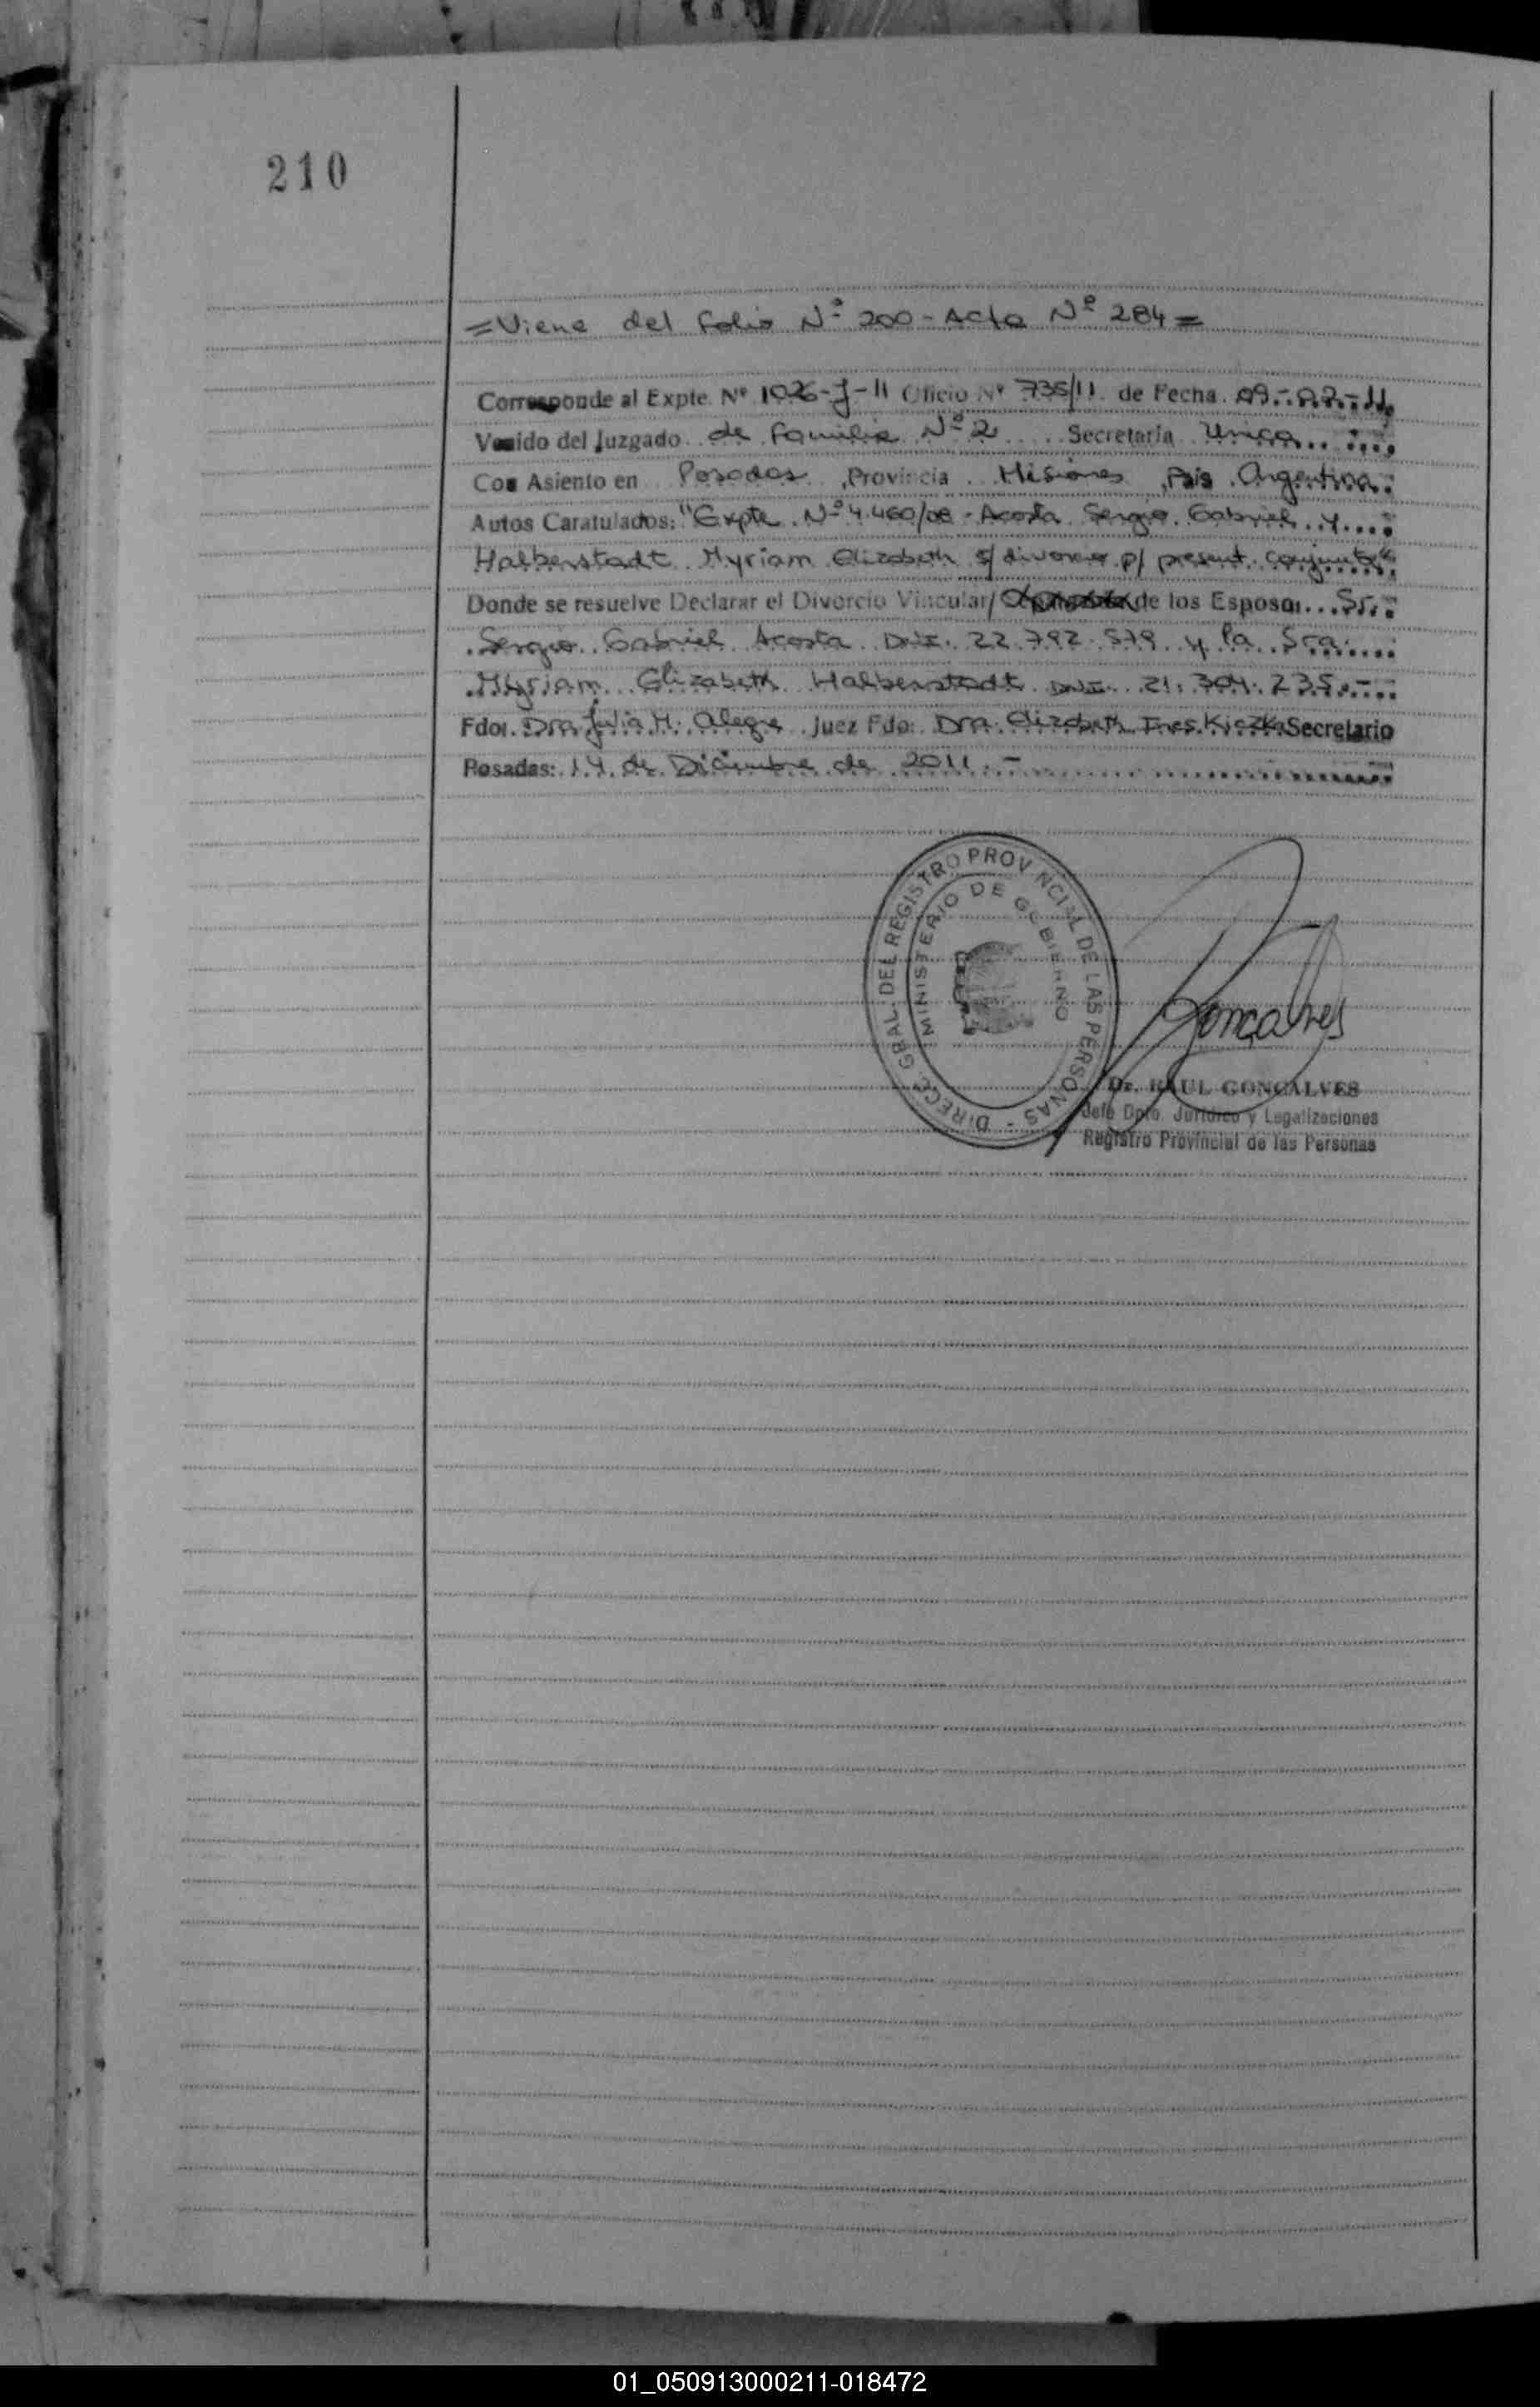 210
=Viene del folio Nº 200 - Acta Nº 284=
Corresponde al Expte. Nº 1026-J-11 Oficio Nº 735/11 de Fecha 09
Venido del Juzgado de Familia Nº 2 Secretaría Unica
Con Asiento en Posadas, Provincia Misiones, País Argentina
Autos Caratulados: "Expte. Nº 4.460/08 - Acosta Sergio Gabriel y
Halberstadt Myriam Elizabeth s/ divorcio p/ present. conjunta"
Donde se resuelve Declarar el Divorcio Vincular/ de los Esposos Sr.
Sergio Gabriel Acosta DNI. 22.792.579 y la Sra.
Myriam Elizabeth Halberstadt DNI. 21.304.235.-
Fdo. Dra. Julia M. Alegre Juez Fdo: Dra. Elizabeth Ines Kiczka Secretario
Posadas: 14 de Diciembre de 2011.-
DIRECC. GRAL. DEL REGISTRO PROVINCIAL DE LAS PERSONAS -
MINISTERIO DE GOBIERNO
Goncalves
Dr. RAUL GONCALVES
Jefe Dpto. Jurídico y Legalizaciones
Registro Provincial de las Personas
01_050913000211-018472